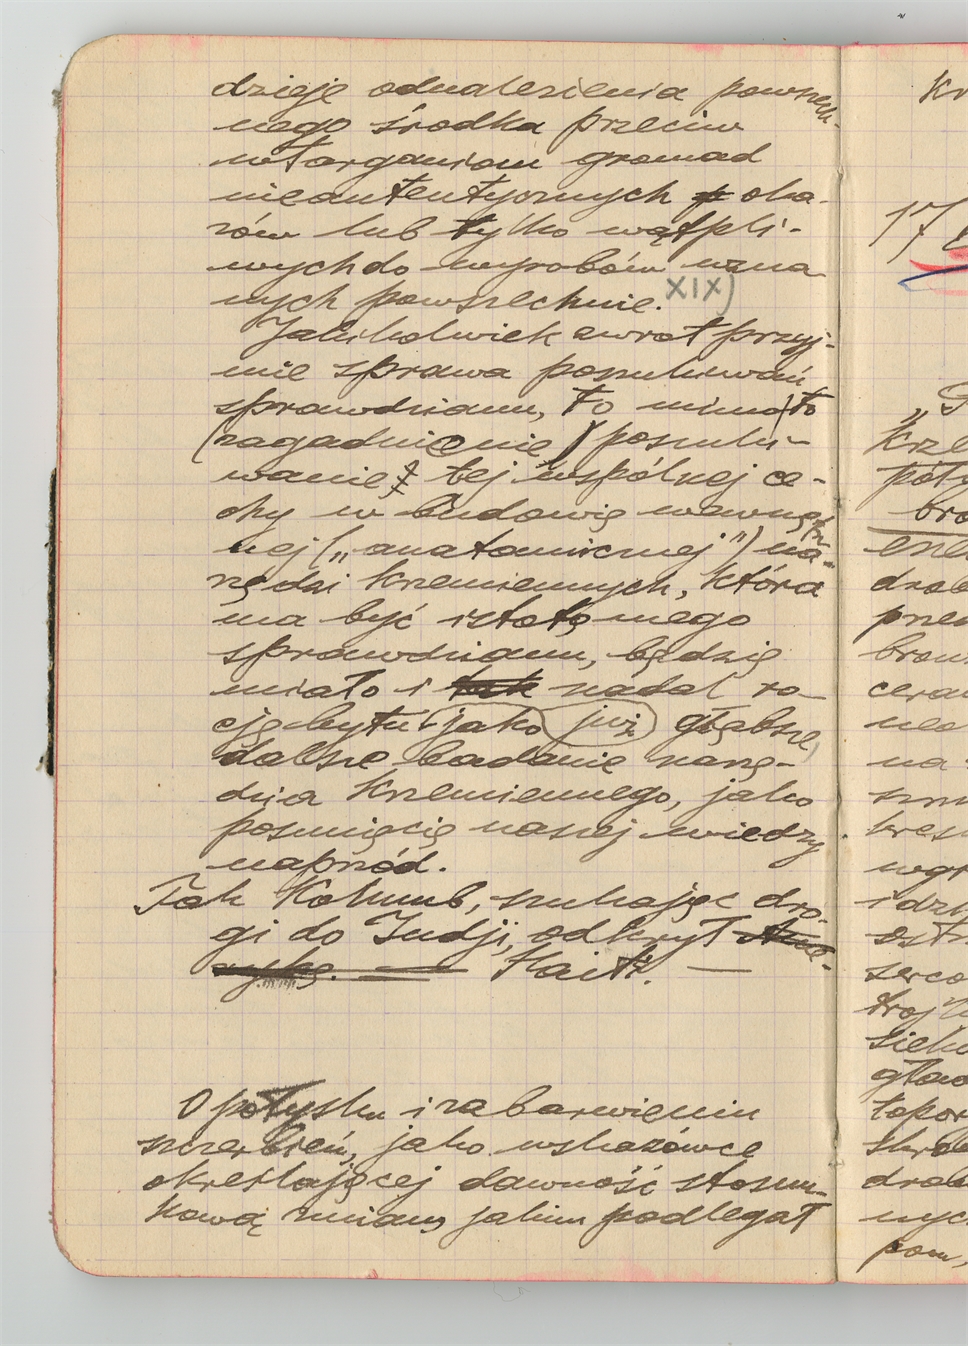 dzieję odnalezienia powszech-
nego środka przeciw
wtargnniom gromad
nieautentycznych oka-
zów lub tylko wątpli-
wych do wyrobów uzna-
nych powszechnie. XIX)
Jakikolwiek zwrot przyj-
mie sprawa poszukiwań
sprawdzianu, to mimo to
(zagadnienie) poszuki-
wanie tej wspólnej ce-
chy w budowie wewnętrz-
nej („anatomicznej") na-
rzędzi krzemiennych, która
ma być istotą mego
sprawdzianu, będzie
miało i tak nadal ra-
cję bytu jako już głębsze,
dalsze badanie narzę-
dzia krzemiennego, jako
posunięcie naszej wiedzy
naprzód.
Tak Kolumb, szukając dro-
gi do Indji, odkrył Ame-
rykę. — Haiti. —
O połysku i zabarwieniu
szczerbień, jako wskazówce
określającej dawność stosun-
kową zmian, jakim podlegał
Kr
17
„
krze
poły
bro
drob
prze
bron
na
i dzi
serco
trojk
siek
głow
topor
drob
nyc
pom,